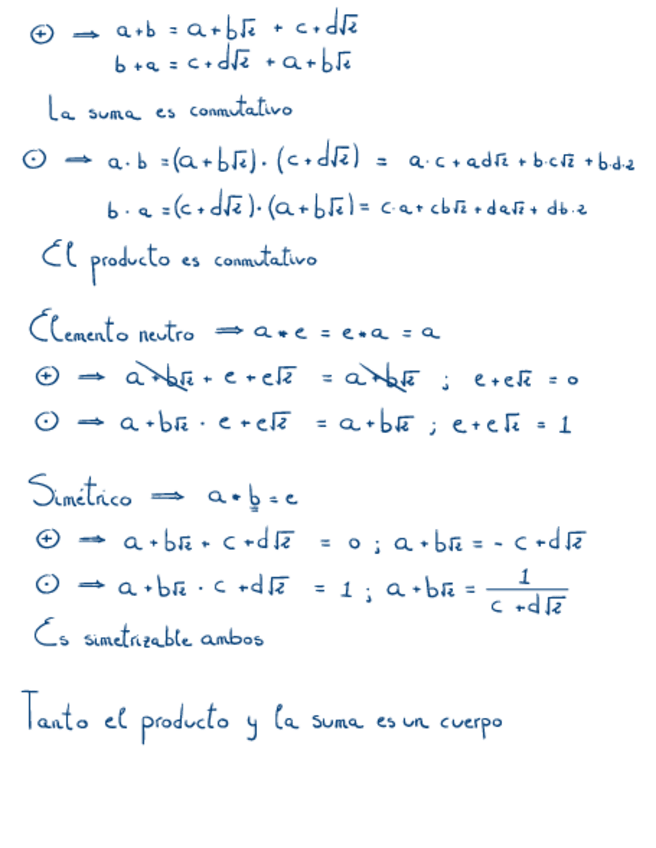 ⊕ ⟹ a+b = a+b√2 + c+d√2
b+a = c+d√2 + a+b√2
La suma es conmutativo
⊙ ⟹ a·b =(a+b√2)·(c+d√2) = a·c+ad√2+b·c√2+b·d·2
b·a =(c+d√2)·(a+b√2)= c·a+cb√2+da√2+ db·2
El producto es conmutativo
Elemento neutro ⟹ a*e = e*a = a
⊕ ⟹ a+b√2 + e+e√2 = a+b√2 ; e+e√2 = 0
⊙ ⟹ a+b√2 · e+e√2 = a+b√2 ; e+e√2 = 1
Simétrico ⟹ a*b=e
⊕ ⟹ a+b√2 + c+d√2 = 0 ; a+b√2 = - c+d√2
⊙ ⟹ a+b√2 · c+d√2 = 1 ; a+b√2 = 1/(c+d√2)
Es simetrizable ambos
Tanto el producto y la suma es un cuerpo